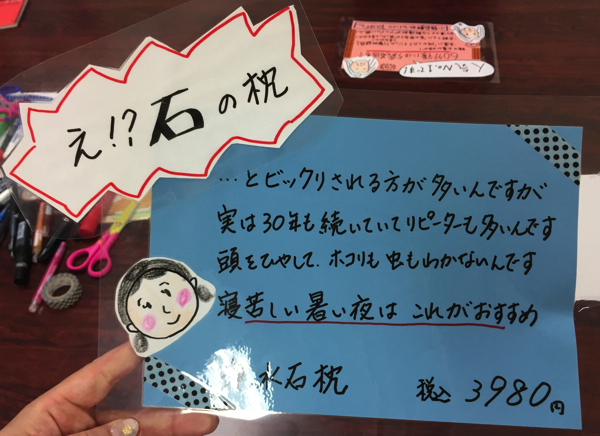 え!?石の枕
…とビックリされる方が多いんですが
実は30年も続いていてリピーターも多いんです
頭をひやして、ホコリも虫もわかないんです
寝苦しい暑い夜は これがおすすめ
水石枕 税込 3980円
人気No.1です!